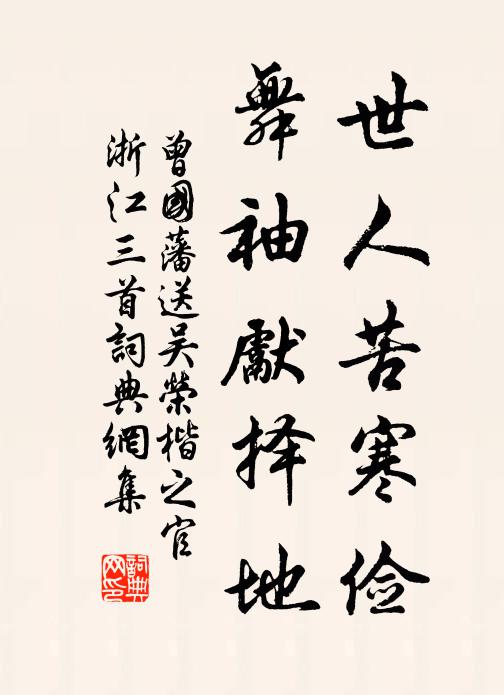 世人苦寒俭
舞袖獻择地
曾國藩送吴榮楷之官
浙江三首詞典網集
詞典网印